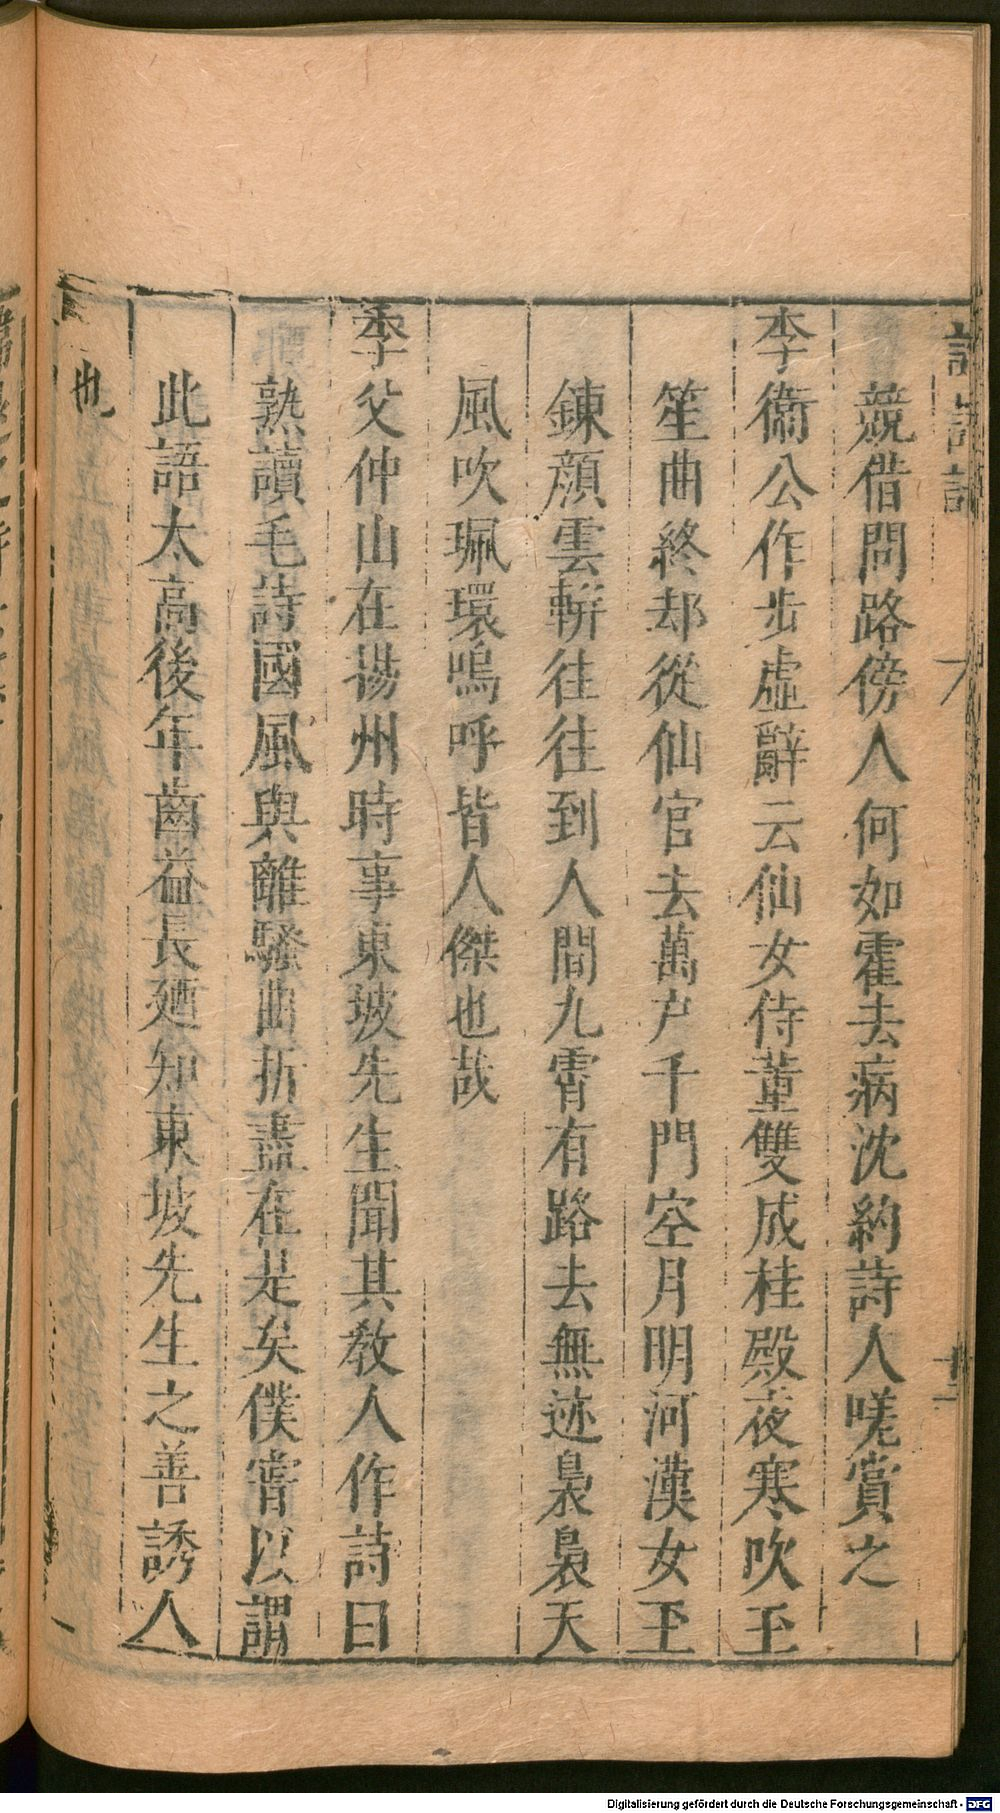 競借問路傍人何如霍去病沈約詩人嗟賞之
李衞公作步虛辭云仙女侍董雙成桂殿夜寒吹玉
笙曲終却從仙官去萬户千門空月明河漢女玉
鍊顔雲軿往往到人間九霄有路去無迹裊裊天
風吹珮環嗚呼皆人傑也哉
季父仲山在揚州時事東坡先生聞其教人作詩曰
熟讀毛詩國風與離騷曲折盡在是矣僕嘗以謂
此語太高後年齒益長廼知東坡先生之善誘人
也
Digitalisierung gefördert durch die Deutsche Forschungsgemeinschaft - DFG